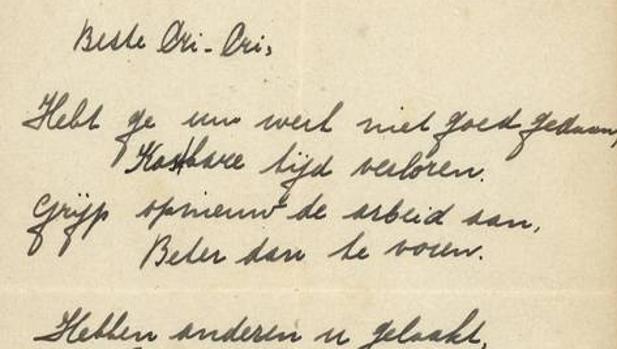 Beste Cri-Cri,
Hebt ge uw werk niet goed gedaan,
Kostbare tijd verloren.
Grijp opnieuw de arbeid aan,
Beter dan te voren.
Hebben anderen u gelaakt,